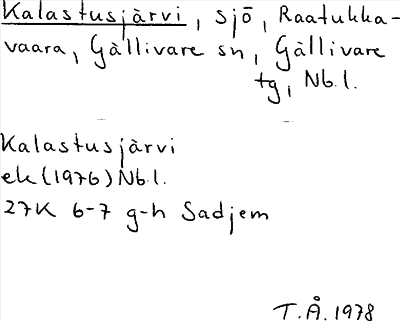 Kalastusjärvi, sjö, Raatukka-
vaara, Gällivare sn, Gällivare
tg, Nb.l.
Kalastusjärvi
ek (1976) Nb.l.
27K 6-7 g-h Sadjem
T.Å. 1978